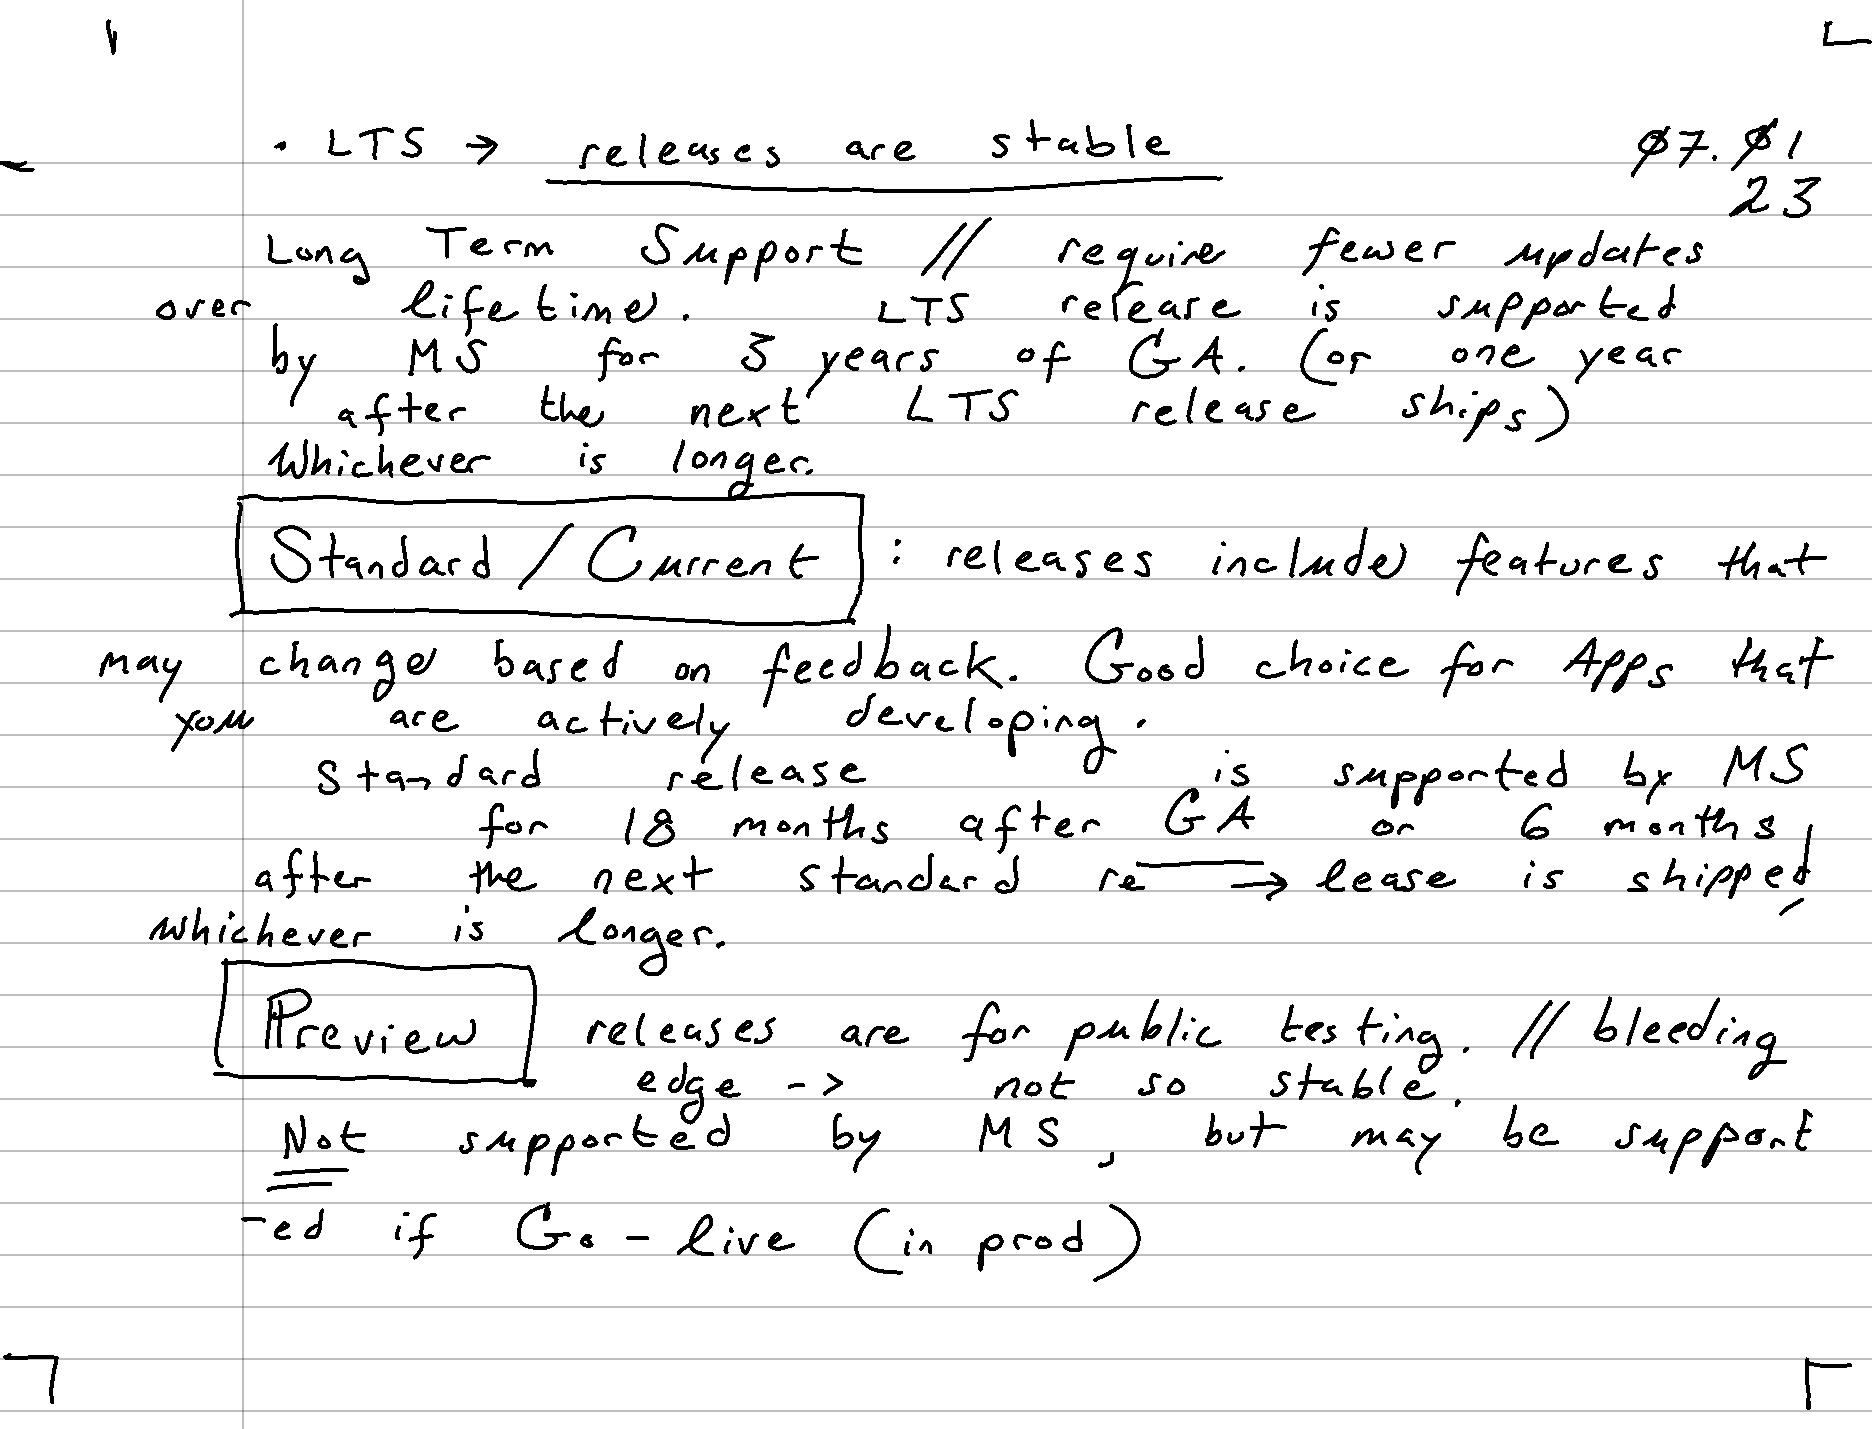 • LTS → releases are stable
ø7.ø1
23
Long Term Support // require fewer updates
over lifetime. LTS release is supported
by MS for 3 years of GA. (or one year
after the next LTS release ships)
Whichever is longer.
Standard / Current : releases include features that
may change based on feedback. Good choice for Apps that
you are actively developing.
Standard release is supported by MS
for 18 months after GA or 6 months
after the next standard re → lease is shipped,
whichever is longer.
Preview releases are for public testing. // bleeding
edge -> not so stable.
Not supported by MS, but may be support
-ed if Go-live (in prod)